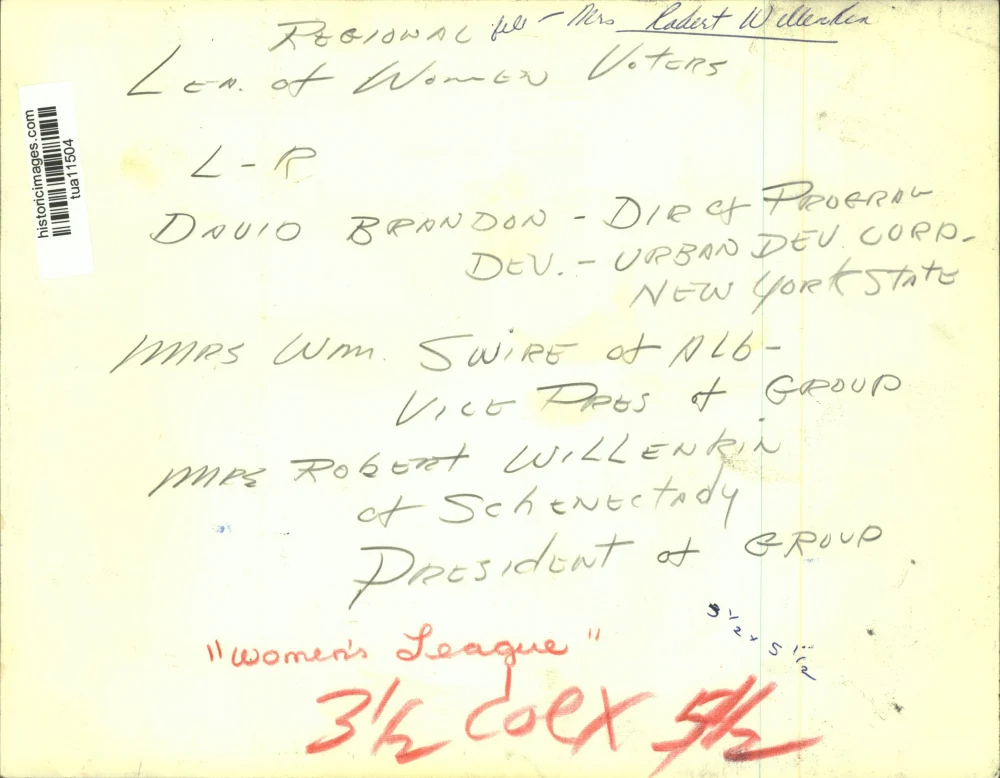 REGIONAL
Mrs Robert Willenkin
LEA. of WOMEN VOTERS
historicimages.com
tua11504
L-R
DAVID BRANDON - DIR of PROGRAM
DEV. - URBAN DEV CORP.
NEW YORK STATE
MRS Wm. SWIRE of Alb -
VICE PRES of GROUP
MRS ROBERT WILLENKIN
of SCHENECTADY
PRESIDENT of GROUP
3 1/2 x 5 1/2
"Women's League"
3 1/2 Col X 5 1/2